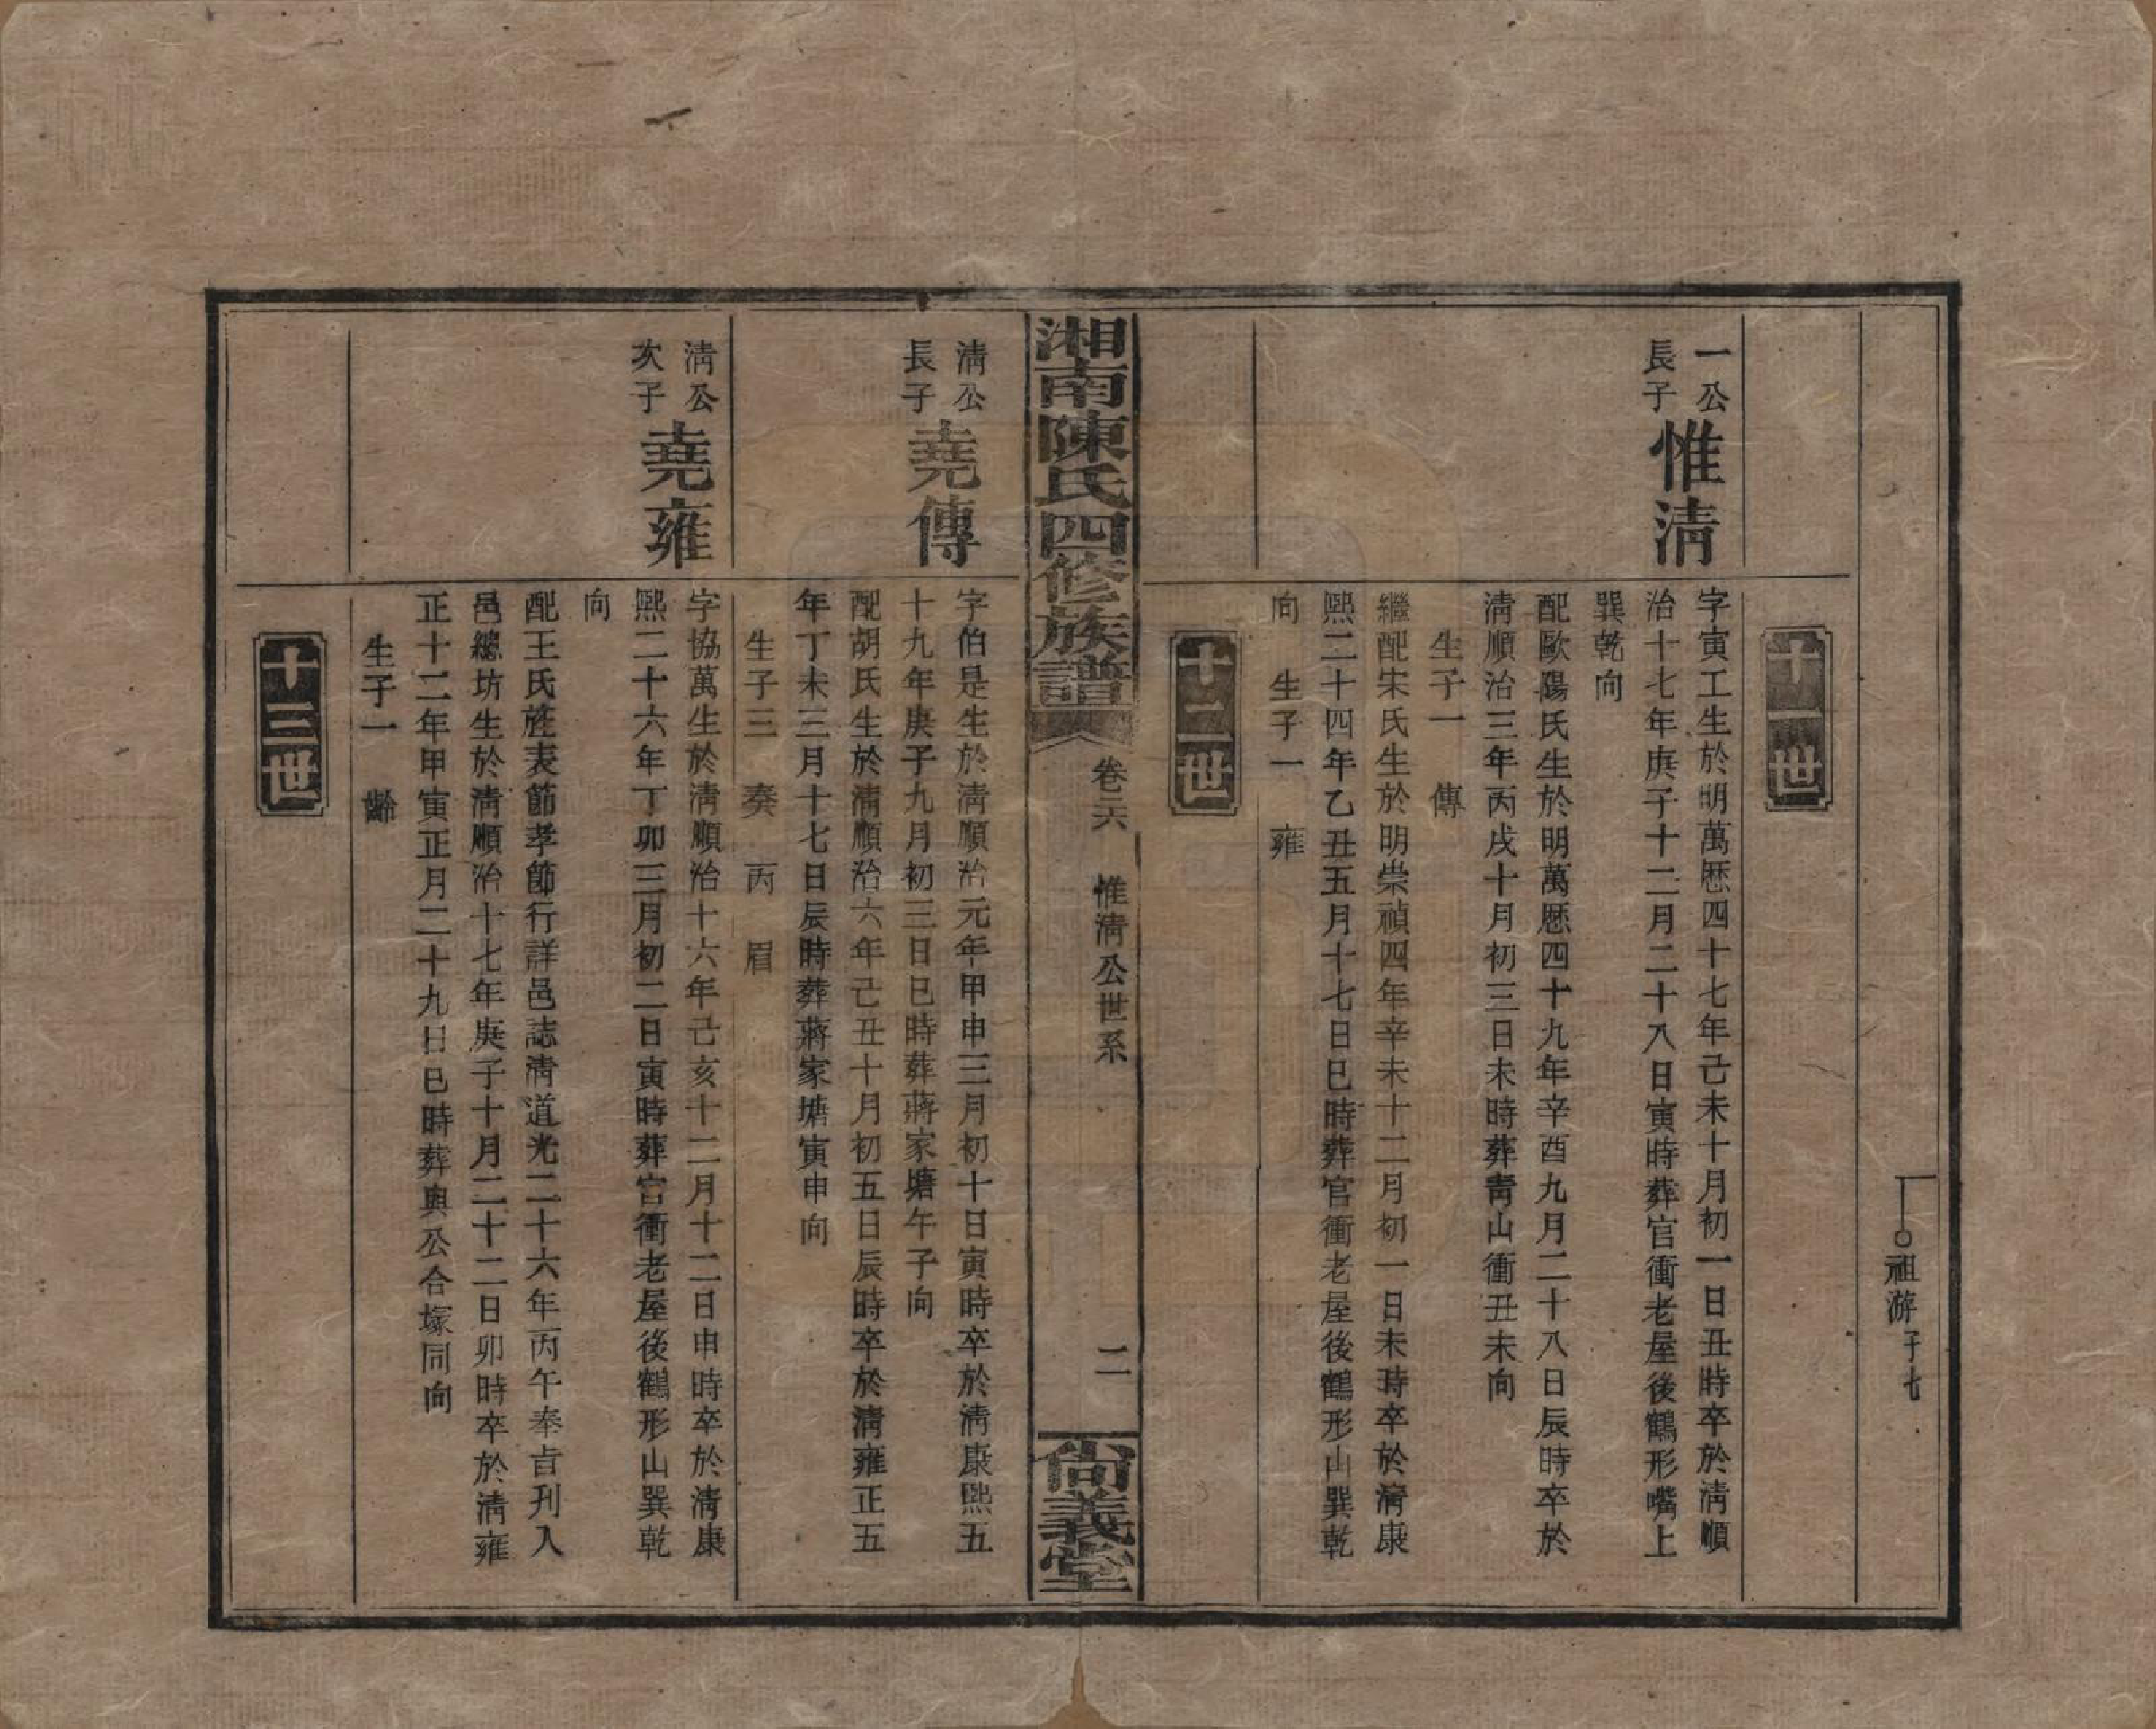 祖游子七
十一世
一公
長子
惟清
字寅工生於明萬歷四十七年己未十月初一日丑時卒於清順
治十七年庚子十二月二十八日寅時葬官衝老屋後鶴形嘴上
巽乾向
配歐陽氏生於明萬歷四十九年辛酉九月二十八日辰時卒於
清順治三年丙戌十月初三日未時葬青山衝丑未向
生子一 傳
繼配宋氏生於明崇禎四年辛未十二月初一日未時卒於清康
熙二十四年乙丑五月十七日巳時葬官衝老屋後鶴形山巽乾
向 生子一 雍
十二世
湘南陳氏四修族譜
卷六 惟清公世系
二
尙義堂
清公
長子
堯傳
字伯是生於清順治元年甲申三月初十日寅時卒於清康熙五
十九年庚子九月初三日巳時葬蔣家塘午子向
配胡氏生於清順治六年己丑十月初五日辰時卒於清雍正五
年丁未三月十七日辰時葬蔣家塘寅申向
生子三 奏 丙 眉
清公
次子
堯雍
字協萬生於清順治十六年己亥十二月十二日申時卒於清康
熙二十六年丁卯三月初二日寅時葬官衝老屋後鶴形山巽乾
向
配王氏旌表節孝節行詳邑誌清道光二十六年丙午奉旨刊入
邑總坊生於清順治十七年庚子十月二十二日卯時卒於清雍
正十二年甲寅正月二十九日巳時葬與公合塚同向
生子一 齡
十三世